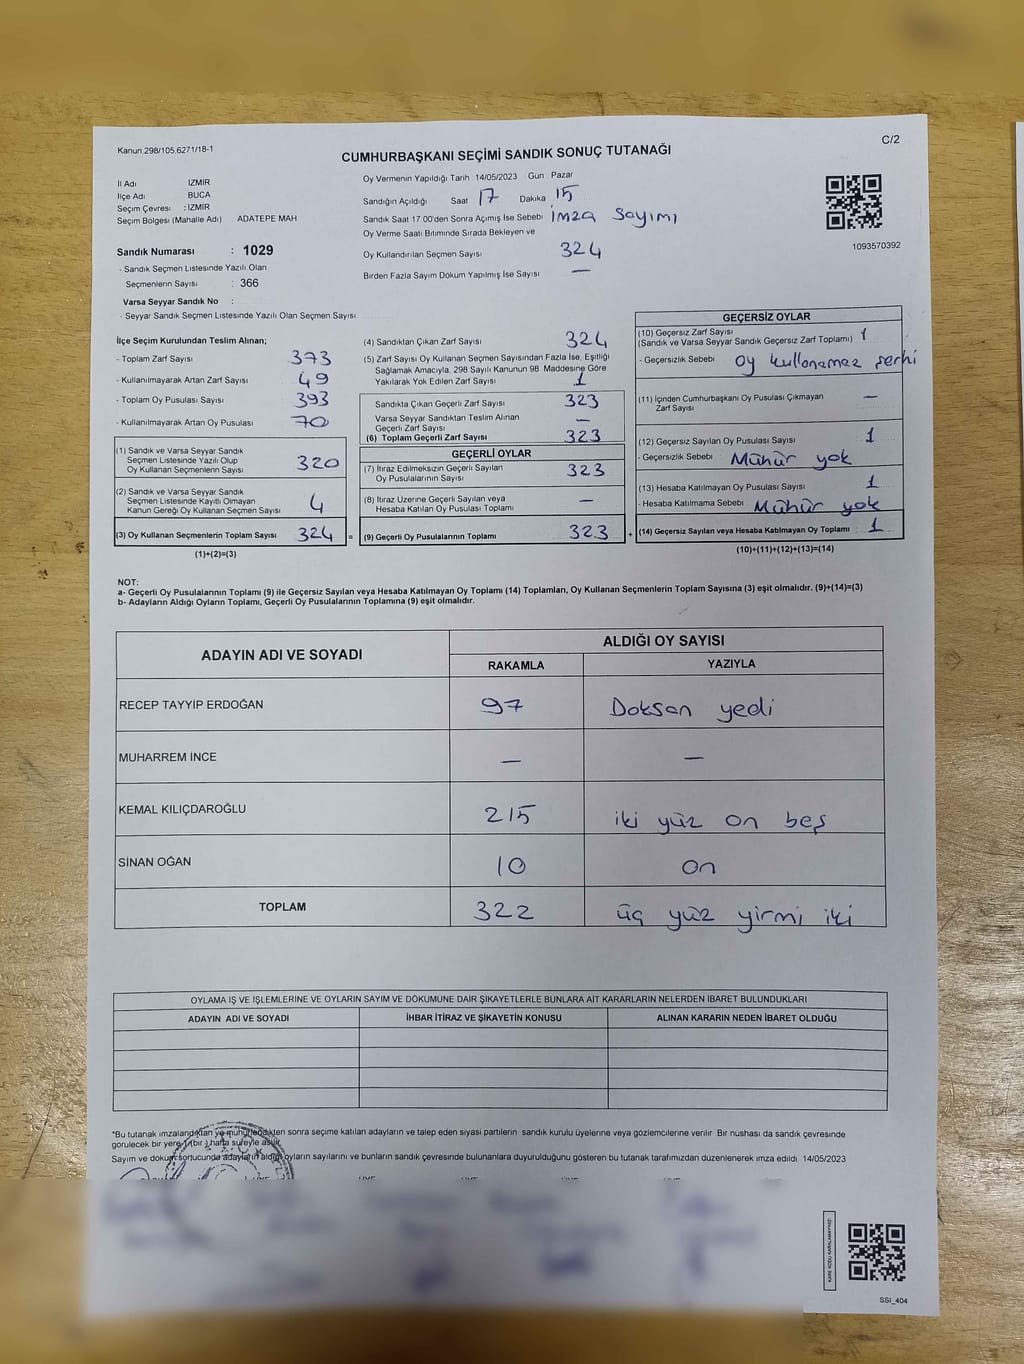 Kanun,298/105,6271/18-1
C/2
CUMHURBAŞKANI SEÇİMİ SANDIK SONUÇ TUTANAĞI
İl Adı İZMİR
İlçe Adı BUCA
Seçim Çevresi : İZMİR
Seçim Bölgesi (Mahalle Adı) ADATEPE MAH
Sandık Numarası : 1029
- Sandık Seçmen Listesinde Yazılı Olan
Seçmenlerin Sayısı : 366
Varsa Seyyar Sandık No :
- Seyyar Sandık Seçmen Listesinde Yazılı Olan Seçmen Sayısı
Oy Vermenin Yapıldığı Tarih 14/05/2023 Gün Pazar
Sandığın Açıldığı Saat 17 Dakika 15
Sandık Saat 17 00'den Sonra Açımış İse Sebebi imza sayımı
Oy Verme Saati Bitiminde Sırada Bekleyen ve
Oy Kullandırılan Seçmen Sayısı 324
Birden Fazla Sayım Döküm Yapılmış İse Sayısı —
1093570392
İlçe Seçim Kurulundan Teslim Alınan;
- Toplam Zarf Sayısı 373
- Kullanılmayarak Artan Zarf Sayısı 49
- Toplam Oy Pusulası Sayısı 393
- Kullanılmayarak Artan Oy Pusulası 70
(1) Sandık ve Varsa Seyyar Sandık
Seçmen Listesinde Yazılı Olup
Oy Kullanan Seçmenlerin Sayısı 320
(2) Sandık ve Varsa Seyyar Sandık
Seçmen Listesinde Kayıtlı Olmayan
Kanun Gereği Oy Kullanan Seçmen Sayısı 4
(3) Oy Kullanan Seçmenlerin Toplam Sayısı 324 =
(1)+(2)=(3)
(4) Sandıktan Çıkan Zarf Sayısı 324
(5) Zarf Sayısı Oy Kullanan Seçmen Sayısından Fazla İse, Eşitliği
Sağlamak Amacıyla, 298 Sayılı Kanunun 98 Maddesine Göre
Yakılarak Yok Edilen Zarf Sayısı 1
Sandıkta Çıkan Geçerli Zarf Sayısı 323
Varsa Seyyar Sandıktan Teslim Alınan
Geçerli Zarf Sayısı —
(6) Toplam Geçerli Zarf Sayısı 323
GEÇERLİ OYLAR
(7) İtiraz Edilmeksizin Geçerli Sayılan
Oy Pusulalarının Sayısı 323
(8) İtiraz Üzerine Geçerli Sayılan veya
Hesaba Katılan Oy Pusulası Toplamı —
(9) Geçerli Oy Pusulalarının Toplamı 323 +
GEÇERSİZ OYLAR
(10) Geçersiz Zarf Sayısı
(Sandık ve Varsa Seyyar Sandık Geçersiz Zarf Toplamı) 1
- Geçersizlik Sebebi oy kullanamaz şerhi
(11) İçinden Cumhurbaşkanı Oy Pusulası Çıkmayan
Zarf Sayısı —
(12) Geçersiz Sayılan Oy Pusulası Sayısı 1
- Geçersizlik Sebebi Mühür yok
(13) Hesaba Katılmayan Oy Pusulası Sayısı 1
- Hesaba Katılmama Sebebi Mühür yok
(14) Geçersiz Sayılan veya Hesaba Katılmayan Oy Toplamı 1
(10)+(11)+(12)+(13)=(14)
NOT:
a- Geçerli Oy Pusulalarının Toplamı (9) ile Geçersiz Sayılan veya Hesaba Katılmayan Oy Toplamı (14) Toplamları, Oy Kullanan Seçmenlerin Toplam Sayısına (3) eşit olmalıdır. (9)+(14)=(3)
b- Adayların Aldığı Oyların Toplamı, Geçerli Oy Pusulalarının Toplamına (9) eşit olmalıdır.
ADAYIN ADI VE SOYADI
ALDIĞI OY SAYISI
RAKAMLA YAZIYLA
RECEP TAYYİP ERDOĞAN 97 Doksan yedi
MUHARREM İNCE — —
KEMAL KILIÇDAROĞLU 215 iki yüz on beş
SİNAN OĞAN 10 on
TOPLAM 322 üç yüz yirmi iki
OYLAMA İŞ VE İŞLEMLERİNE VE OYLARIN SAYIM VE DÖKÜMÜNE DAİR ŞİKAYETLERLE BUNLARA AİT KARARLARIN NELERDEN İBARET BULUNDUKLARI
ADAYIN ADI VE SOYADI İHBAR İTİRAZ VE ŞİKAYETİN KONUSU ALINAN KARARIN NEDEN İBARET OLDUĞU
*Bu tutanak imzalandıktan ve mühürlendikten sonra seçime katılan adayların ve talep eden siyasi partilerin sandık kurulu üyelerine veya gözlemcilerine verilir Bir nüshası da sandık çevresinde
görülecek bir yere 1 (bir ) hafta süreyle asılır
Sayım ve döküm sonucunda adayların aldığı oyların sayıları ve bunların sandık çevresinde bulunanlara duyurulduğunu gösteren bu tutanak tarafımızdan düzenlenerek imza edildi 14/05/2023
SSI_404